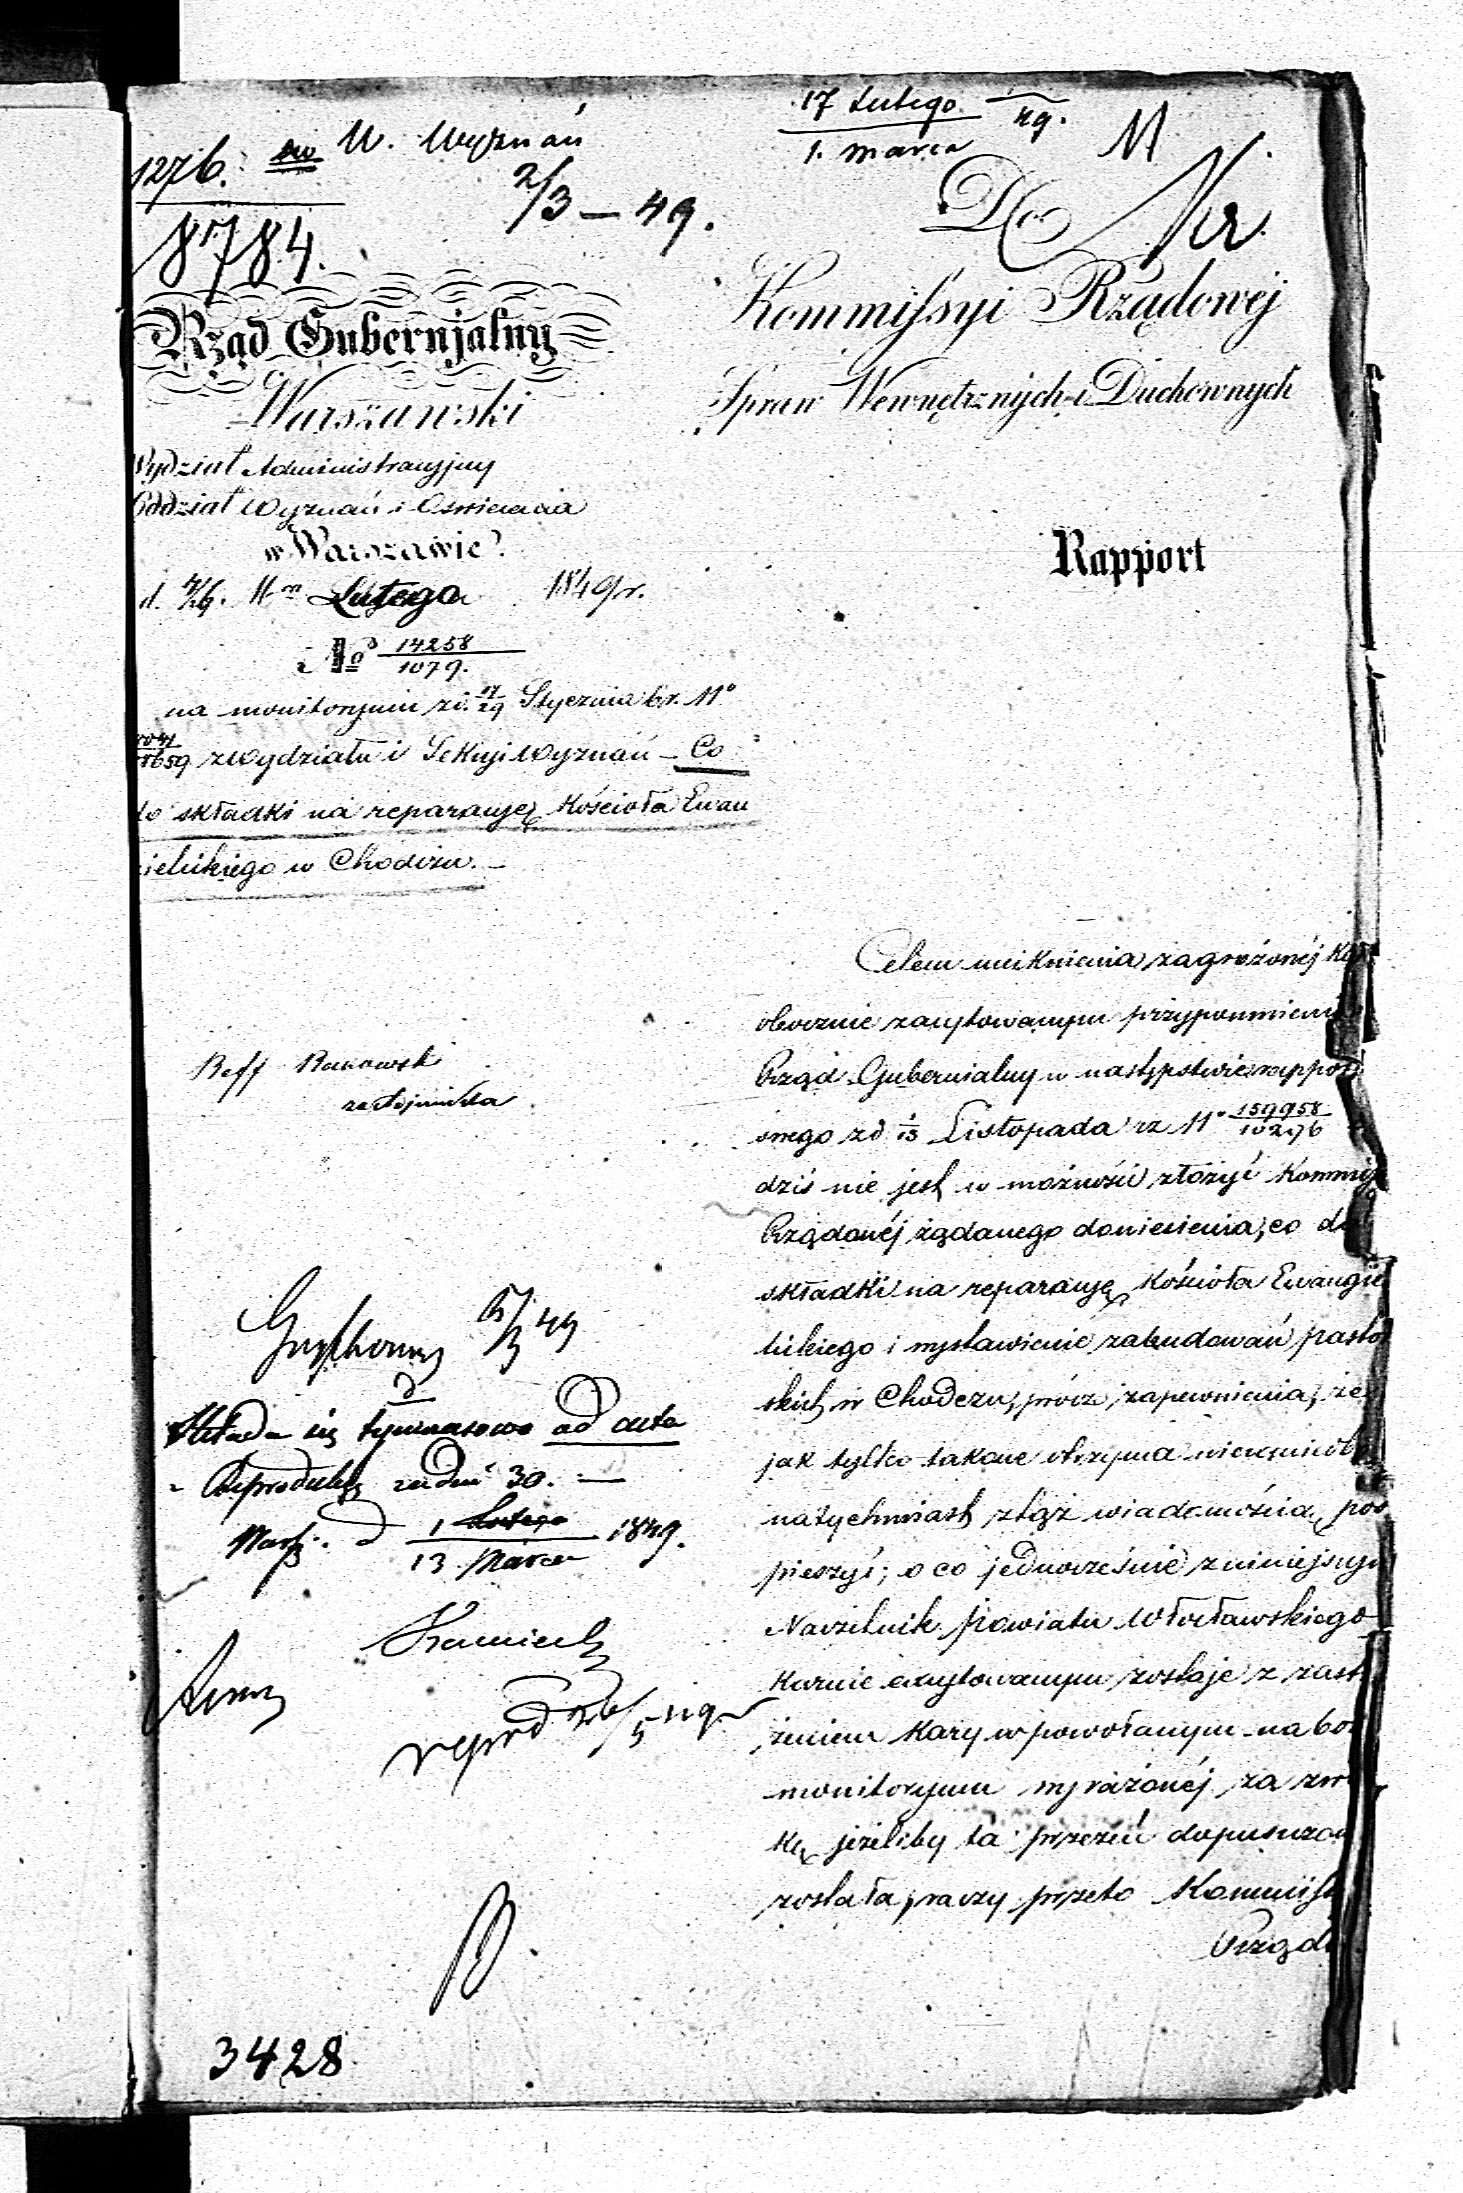 17 Lutego
1. Marca 49.
1276. W. Wyznań
2/3 – 49.
8784.
Do
Kommissyi Rządowej
Spraw Wewnętrznych i Duchownych
Rząd Gubernjalny
Warszawski
Wydział Administracyjny
Oddział Wyznań i Oświecenia
w Warszawie.
Lutego 1849 r.
No 14258/1079.
na monitorjum zd. 17/29 Stycznia b.r. No
z Wydziału i Sekcyi Wyznań – Co
do składki na reparacyę Kościoła Ewan
gielickiego w Chodczu. –
Rapport
Celem uniknienia zagrożonéj
obocznie zacytowanym przypomnieniem
Rząd Gubernialny w następstwie rapportu
swego zd 1/13 Listopada rz No 159958/10296
dziś nie jest w możności złożyć Kommis
Rządowéj żądanego doniesienia, co do
składki na reparacyę Kościoła Ewangie
lickiego i wystawienie zabudowań pastor
skich w Chodczu, prócz zapewnienia, że
jak tylko takowe otrzyma nieomieszka
natychmiast z tąż wiadomością pos
pieszyć; o co jednocześnie z niniejszym
Naczelnik Powiatu Włocławskiego
Karnie excytowanym zostaje z zastr
żeniem Kary w powołanym na bok
monitoryum wyrażonéj za zwło
kę jeżeliby ta przezeń dopuszczon
została, raczy przeto Kommiss
Rządo
Składa się tymczasowo ad acta
Reprodukcya za dni 30. –
Warsz. d 1/13 Marca 1849.
3428